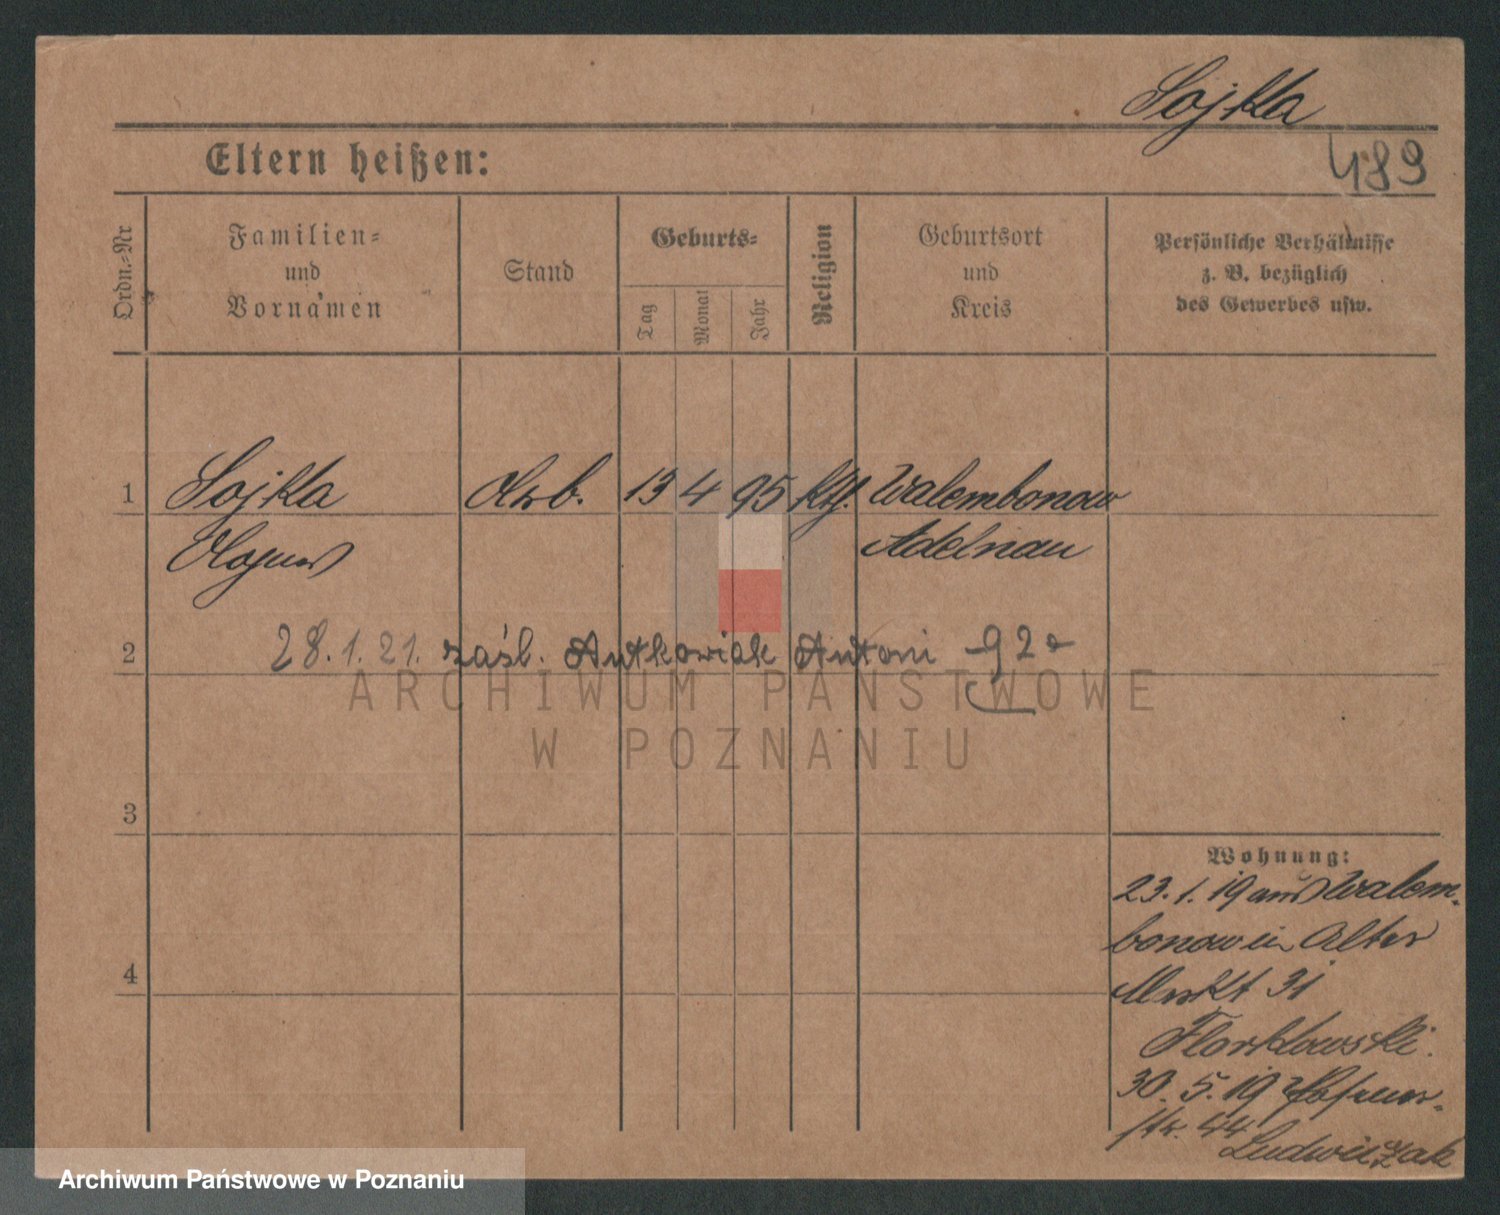 Sojka
489
Eltern heißen:
Ordn.-Nr
Familien-
und
Vornamen
Stand
Geburts-
Tag
Monat
Jahr
Religion
Geburtsort
und
Kreis
Persönliche Verhältnisse
z. B. bezüglich
des Gewerbes usw.
1 Sojka Arb. 13 4 95 kth. Walembonow
Agnes Adelnau
2 28.1.21. zaśl. Antkowiak Antoni 92
ARCHIWUM PAŃSTWOWE
W POZNANIU
3
Wohnung:
23.1.19 aus Walem-
bonow in Alter
4
Markt 31
Florkowski.
30.5.19
str. 44
Ludwiczak
Archiwum Państwowe w Poznaniu